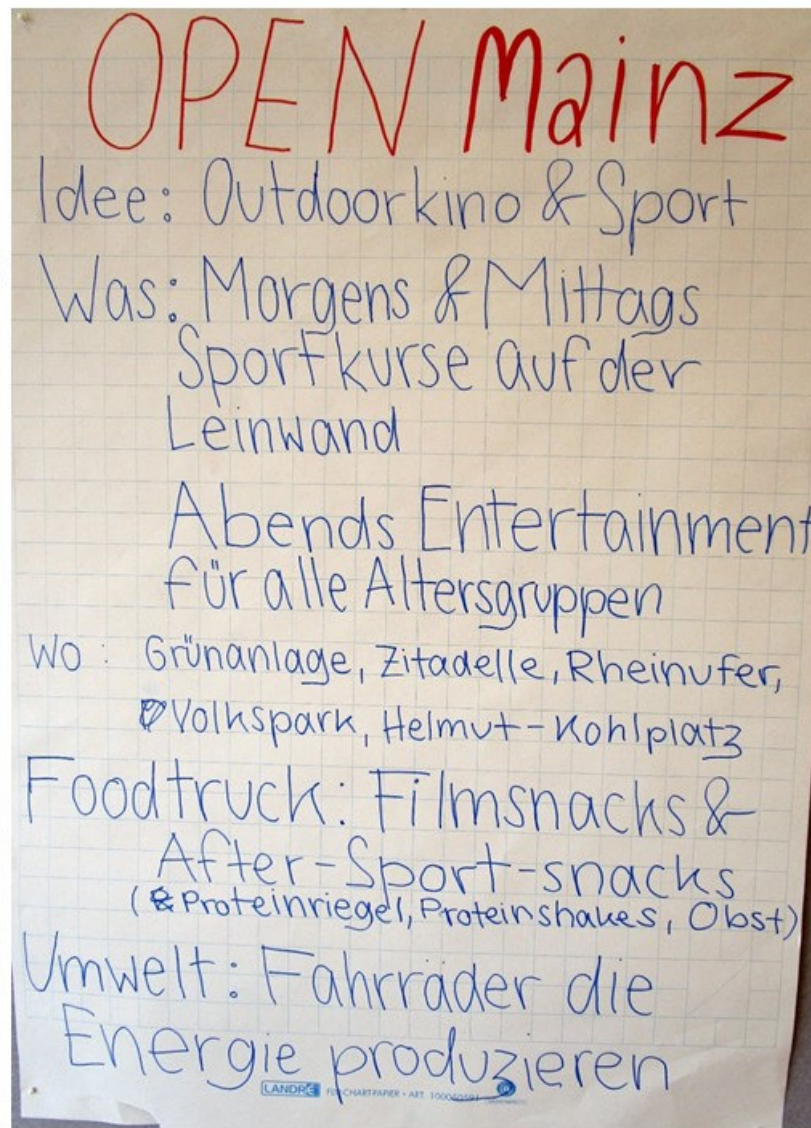 OPEN Mainz
Idee: Outdoorkino & Sport
Was: Morgens & Mittags
Sportkurse auf der
Leinwand
Abends Entertainment
für alle Altersgruppen
Wo: Grünanlage, Zitadelle, Rheinufer,
Volkspark, Helmut-Kohlplatz
Foodtruck: Filmsnacks &
After-Sport-snacks
(& Proteinriegel, Proteinshakes, Obst)
Umwelt: Fahrräder die
Energie produzieren
LANDRÉ